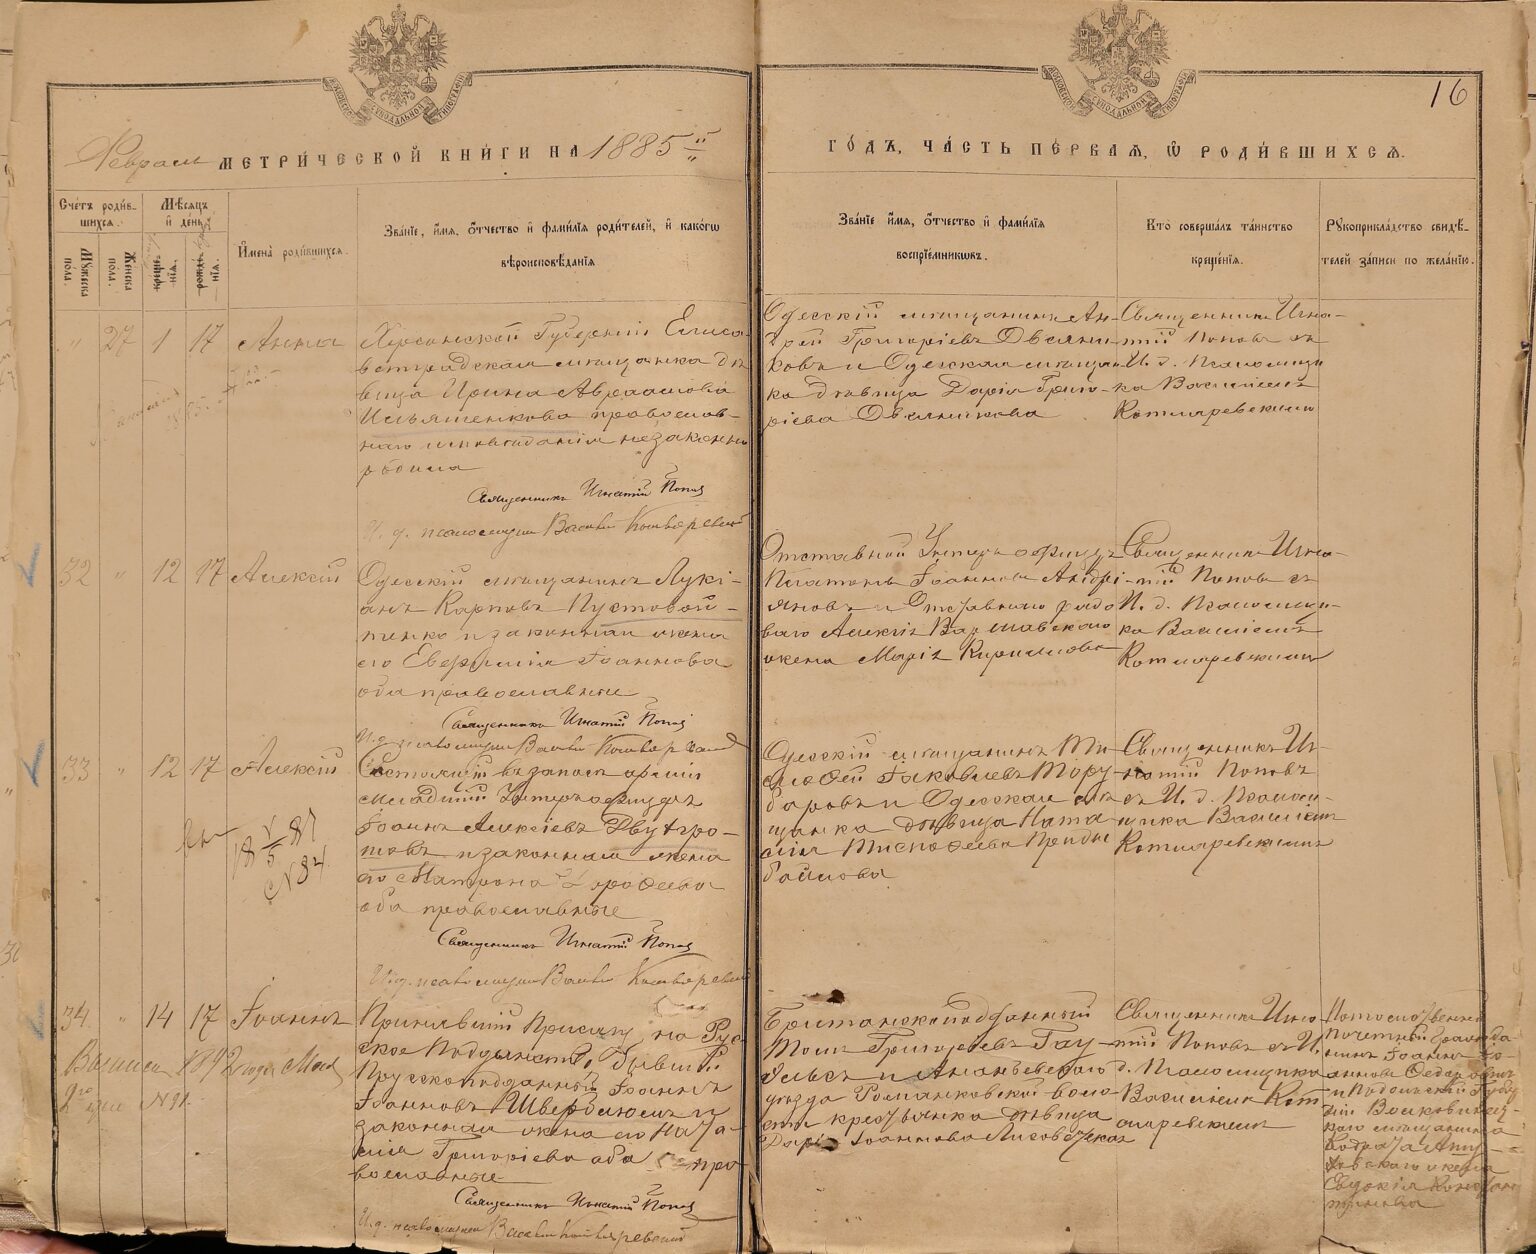 16
Февраль МЕТРИ́ЧЕСКОЙ КНИ́ГИ НА 1885й
ГО́ДЪ, ЧА́СТЬ ПЕ́РВАѦ, Ѽ РОДИ́ВШИХСѦ.
Сче́тъ роди́в-
шихся.
Мужеска пола.
Женска пола.
Мѣ́сяцъ
и҆ день
рожде-
нія.
креще-
нія.
И҆мена̀ роди́вшихся.
Зва́нїе, и҆́мя, ѻ҆́тчество и҆ фами́лїя роди́телей, и҆ како́гѡ
вѣроисповѣ́данїя
Зва́нїе и҆́мя, ѻ҆́тчество и҆ фами́лїя
воспрїе́мникѡвъ.
Кто̀ соверша́лъ та́инство
креще́нїя.
Рꙋкоприкла́дство свидѣ́-
телей за́писи по жела́нїю.
" 27 1 17 Анна
Херсонской Губерніи Елиса-
ветградская мѣщанка дѣ
вица Ирина Авраамова
Ильяшенкова православ-
наго исповѣданія незаконно
родила
Священникъ Игнатій Поповъ
И. д. псаломщика Василій Котляревскій
Одесскій мѣщанинъ Ан-
дрей Григоріевъ Овсянни-
ковъ и Одесская мѣщан
ка дѣвица Дарія Григо-
ріева Овсянникова
Священникъ Игна-
тій Поповъ съ
И. д. Псаломщи
ка Василіемъ
Котляревскимъ
32 " 12 17 Алексій
Одесскій мѣщанинъ Лукі-
анъ Карповъ Пустовой-
тенко и законная жена
его Евфимія Іоаннова
оба православные
Священникъ Игнатій Поповъ
И. д. псаломщика Василій Котляревскій
Отставной Унтеръ офицеръ
Платонъ Іоанновъ Андрі-
яновъ и Отставнаго рядо
ваго Алексія Варшавскаго
жена Марія Кириллова
Священникъ Игна-
тій Поповъ съ
И. д. Псаломщи-
ка Василіемъ
Котляревскимъ
33 " 12 17 Алексій
Состоящій въ запасѣ арміи
младшій Унтеръ офицеръ
Іоаннъ Алексіевъ Двугро-
шовъ и законная жена
его Матрона Дорофеева
оба православные
Священникъ Игнатій Поповъ
И. д. псаломщика Василій Котляревскій
18 V/5 87
№ 84.
Одесскій мѣщанинъ Ти-
мофей Іаковлевъ Тору-
баровъ и Одесская мѣ
щанка дѣвица Ната
лія Тимофеева
Священникъ Иг-
натій Поповъ
съ И. д. Псалом-
щика Василіемъ
Котляревскимъ
34. " 14 17 Іоаннъ
Принявшій Присягу на Рус
ское Подданство, бывшій
Прусскоподданный Іоаннъ
Іоанновъ Швердлюсъ и
законная жена его Ната-
лія Григоріева оба пра-
вославные
Священникъ Игнатій Поповъ
И. д. псаломщика Василій Котляревскій
Выписъ 1892 года Мая
2го дня № 91.
Британскоподданный
Томъ Григоріевъ Гау-
эльсъ и Ананьевскаго
уѣзда Романковской воло-
сти крестьянка дѣвица
Дарія Іоаннова Лисовецкая
Священникъ Игна
тій Поповъ съ И.
д. Псаломщика
Василіемъ Кот
ляревскимъ
Потомственный
почетный гражда
нинъ Іоаннъ Іо-
анновъ
и Подольской Губер
ніи
каго мѣщанина
жена
Евдокія Констан
тинова